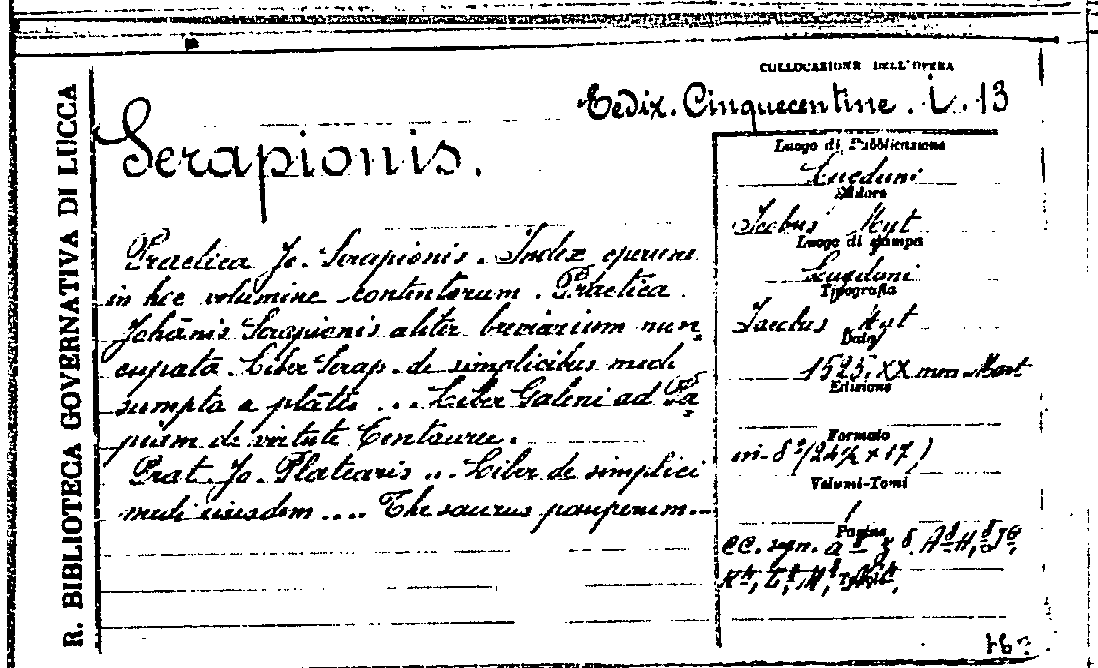 R. BIBLIOTECA GOVERNATIVA DI LUCCA
COLLOCAZIONE DELL'OPERA
Cinquecentine . i . 13
Serapionis.
Practica Jo. Serapionis. Index operum
in hoc volumine contentorum. Practica
Johānis Serapionis aliter breviarium nun
cupata. Liber Serap. de simplicibus medi
sumpta a plātis ... Liber Galeni ad Pa
pium de virtute Centauree.
Prat. Jo. Platearis .. Liber de simplici
medi eiusdem .... Thesaurus pauperum...
Luogo di Pubblicazione
Lugduni
Editore
Jacobus Myt
Luogo di stampa
Lugduni
Tipografia
Jacobus Myt
Data
1525, XX men Mart
Edizione
Formato
in-8° (24½ × 17)
Volumi-Tomi
1
Pagine
CC. segn. a
Tavole